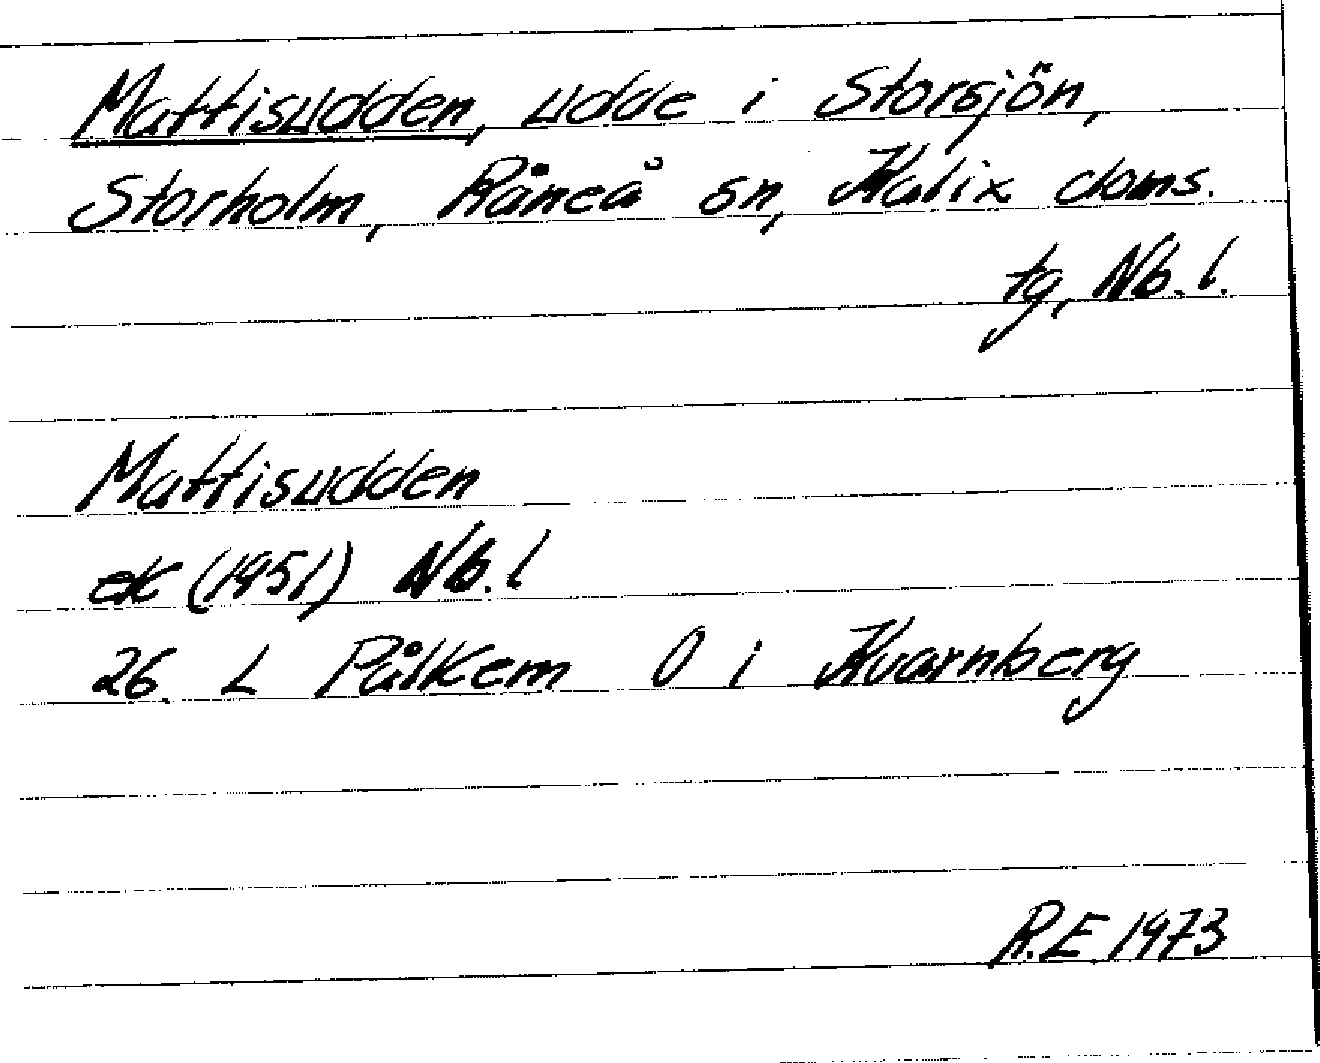 Mattisudden, udde i Storsjön,
Storholm, Råneå sn, Kalix doms.
tg, Nb. l.
Mattisudden
ek (1951) Nb. l
26. L Pålkem Ö i Kvarnberg
R.E. 1973